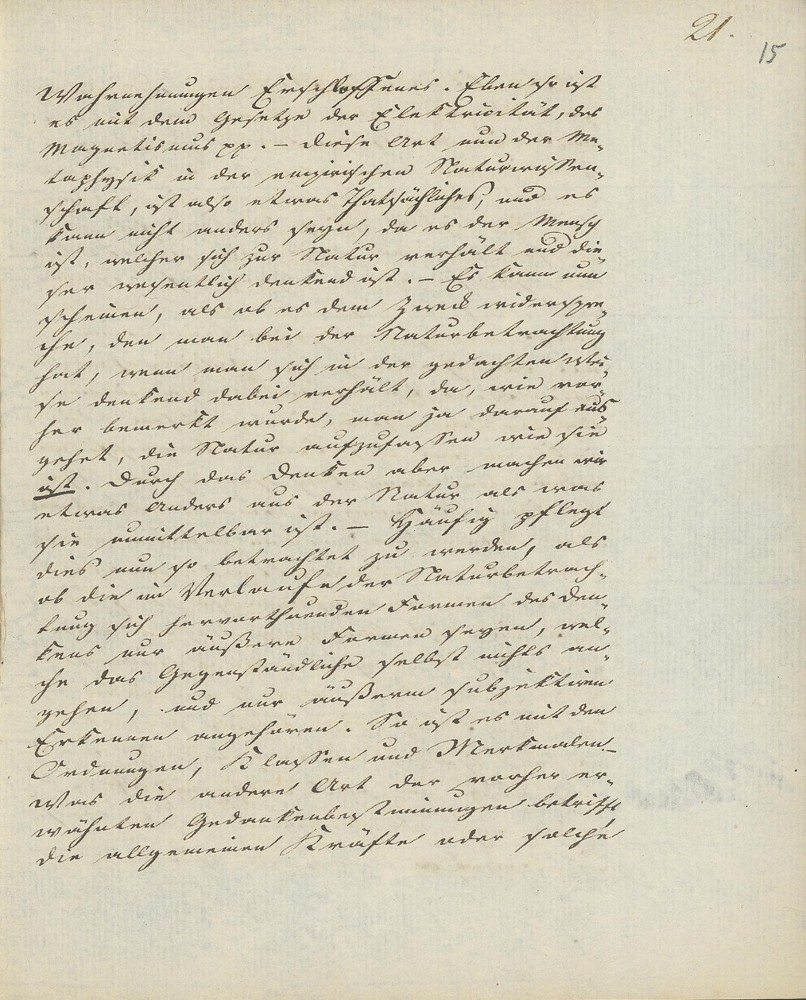 21.
15
Wahrnehmungen Erschlossenes. Eben so ist
es mit dem Gesetze der Elektricität, des
Magnetismus pp. – Diese Art nun der Me-
taphysik in der empirischen Naturwissen-
schaft, ist also etwas Thatsächliches, und es
kann nicht anders seyn, da es der Mensch
ist, welcher sich zur Natur verhält und die-
ser wesentlich denkend ist. – Es kann nun
scheinen, als ob es dem Zweck widerspre-
che, den man bei der Naturbetrachtung
hat, wenn man sich in der gedachten Wei-
se denkend dabei verhält, da, wie vor-
her bemerkt wurde, man ja darauf aus
gehet, die Natur aufzufassen wie sie
ist. Durch das Denken aber machen wir
etwas Anders aus der Natur als was
sie unmittelbar ist. – Häufig pflegt
dies nun so betrachtet zu werden, als
ob die im Verlaufe der Naturbetrach-
tung sich hervorthuenden Formen des Den-
kens nur äußere Formen seyen, wel-
che das Gegenständliche selbst nichts an-
gehen, und nur äußerm subjektiven
Erkennen angehören. So ist es mit den
Ordnungen, Klassen und Merkmalen. –
Was die andere Art der vorher er-
wähnten Gedankenbestimmungen betrifft,
die allgemeinen Kräfte oder solche